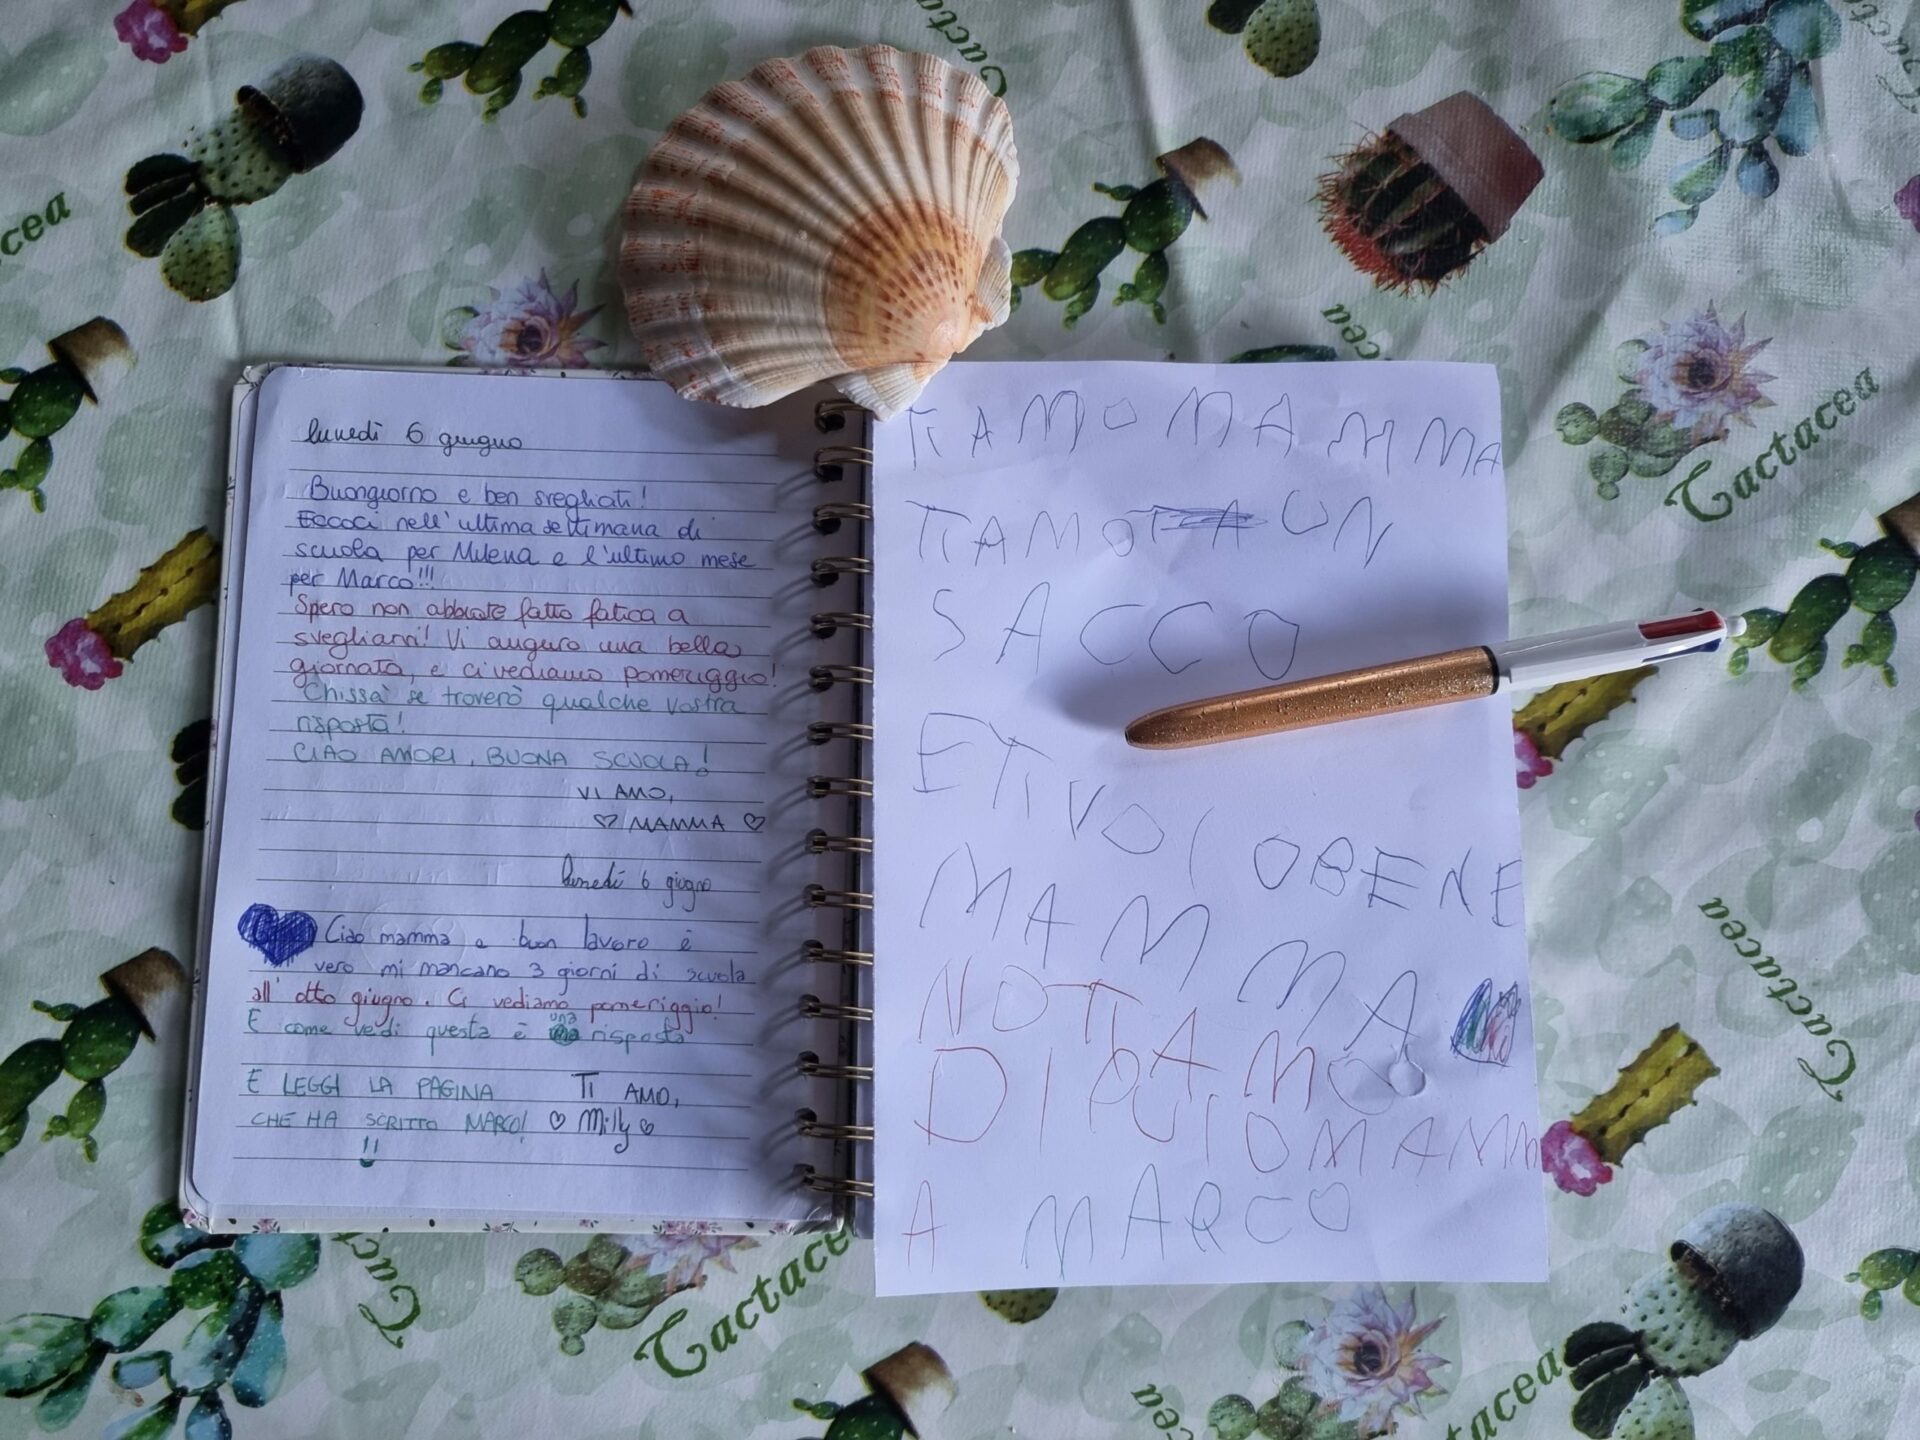 lunedì 6 giugno
Buongiorno e ben svegliati!
Eccoci nell'ultima settimana di
scuola per Milena e l'ultimo mese
per Marco!!!
Spero non abbiate fatto fatica a
svegliarvi! Vi auguro una bella
giornata, e ci vediamo pomeriggio!
Chissà se troverò qualche vostra
risposta!
CIAO AMORI, BUONA SCUOLA!
VI AMO,
♡ MAMMA ♡
lunedí 6 giugno
Ciao mamma e buon lavoro è
vero mi mancano 3 giorni di scuola
all' otto giugno. Ci vediamo pomeriggio!
E come vedi questa è una risposta
E LEGGI LA PAGINA
CHE HA SCRITTO MARCO!
!!
TI AMO,
♡ Milly ♡
TI AMO MAMMA
TI AMO UN
SACCO
E TI VOIO BENE
MAMMA
NO TI AMO
DI PUIO MAMM
A MARCO
Cactacea
Cactacea
Cactacea
Cactacea
Cactacea